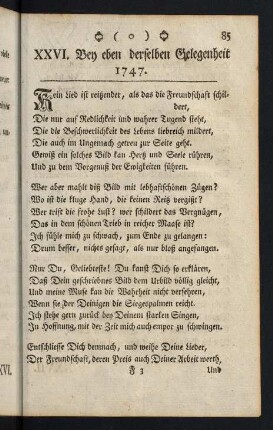 ( o ) 85
XXVI. Bey eben derselben Gelegenheit
1747.
Kein Lied ist reitzender, als das die Freundschaft schil-
dert,
Die nur auf Redlichkeit und wahrer Tugend steht,
Die die Beschwerlichkeit des Lebens liebreich mildert,
Die auch im Ungemach getreu zur Seite geht.
Gewiß ein solches Bild kan Hertz und Seele rühren,
Und zu dem Vorgenuß der Ewigkeiten führen.
Wer aber mahlt diß Bild mit lebhaftschönen Zügen?
Wo ist die kluge Hand, die keinen Reitz vergißt?
Wer trift die frohe Lust? wer schildert das Vergnügen,
Das in dem schönen Trieb in reicher Maase ist?
Ich fühle mich zu schwach, zum Ende zu gelangen:
Drum besser, nichts gesagt, als nur bloß angefangen.
Nur Du, Geliebteste! Du kanst Dich so erklären,
Daß Dein geschriebnes Bild dem Urbild völlig gleicht,
Und meine Muse kan die Wahrheit nicht versehren,
Wenn sie der Deinigen die Siegespalmen reicht.
Ich stehe gern zurück bey Deinem starken Singen,
In Hoffnung, mit der Zeit mich auch empor zu schwingen.
Entschliesse Dich demnach, und weihe Deine Lieder,
Der Freundschaft, deren Preis auch Deiner Arbeit werth,
F 3 Und